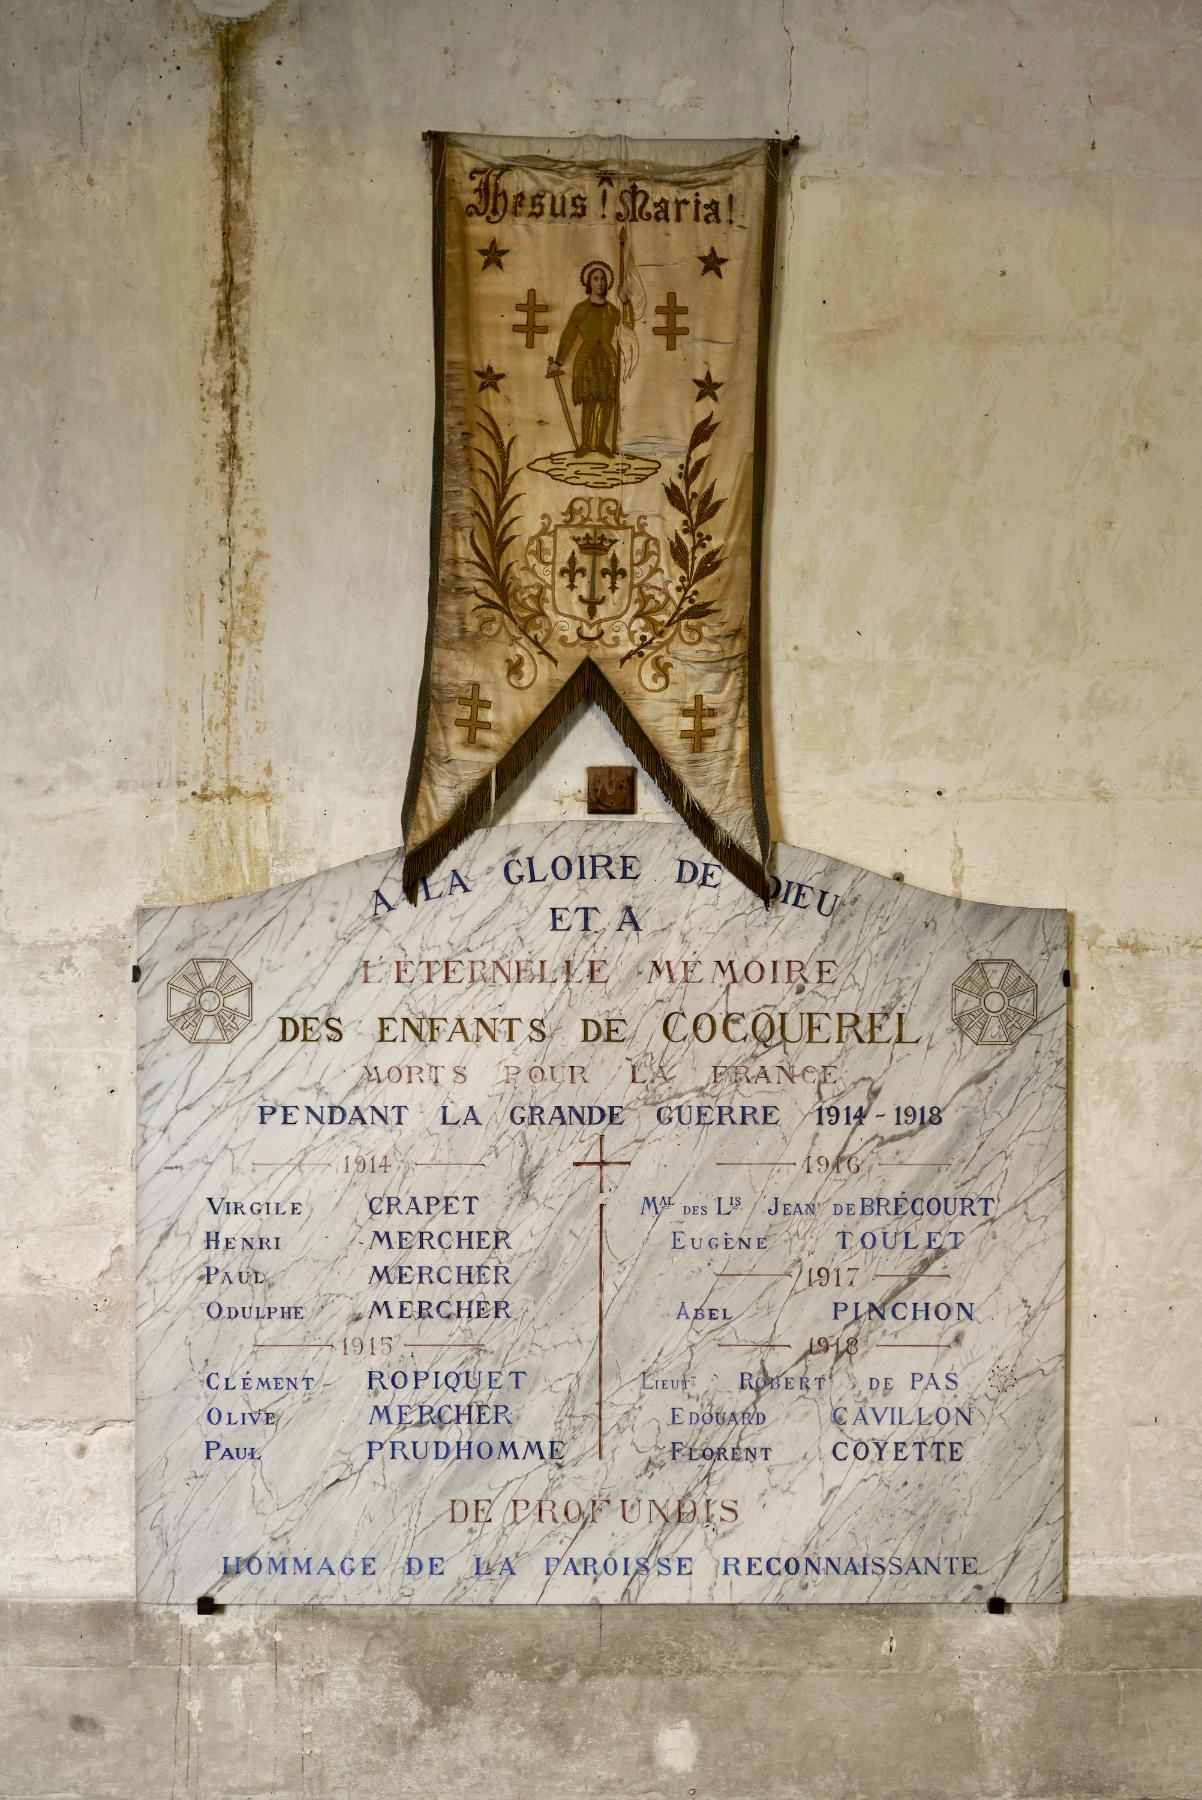 Jhesus ! Maria !
A LA GLOIRE DE DIEU
ET A
L'ETERNELLE MÉMOIRE
DES ENFANTS DE COCQUEREL
MORTS POUR LA FRANCE
PENDANT LA GRANDE GUERRE 1914-1918
1914
VIRGILE CRAPET
HENRI MERCHER
PAUL MERCHER
ODULPHE MERCHER
1915
CLÉMENT ROPIQUET
OLIVE MERCHER
PAUL PRUDHOMME
1916
MAL DES LIS JEAN DE BRÉCOURT
EUGÈNE TOULET
1917
ABEL PINCHON
1918
LIEUTT ROBERT DE PAS
EDOUARD CAVILLON
FLORENT COYETTE
DE PROFUNDIS
HOMMAGE DE LA PAROISSE RECONNAISSANTE